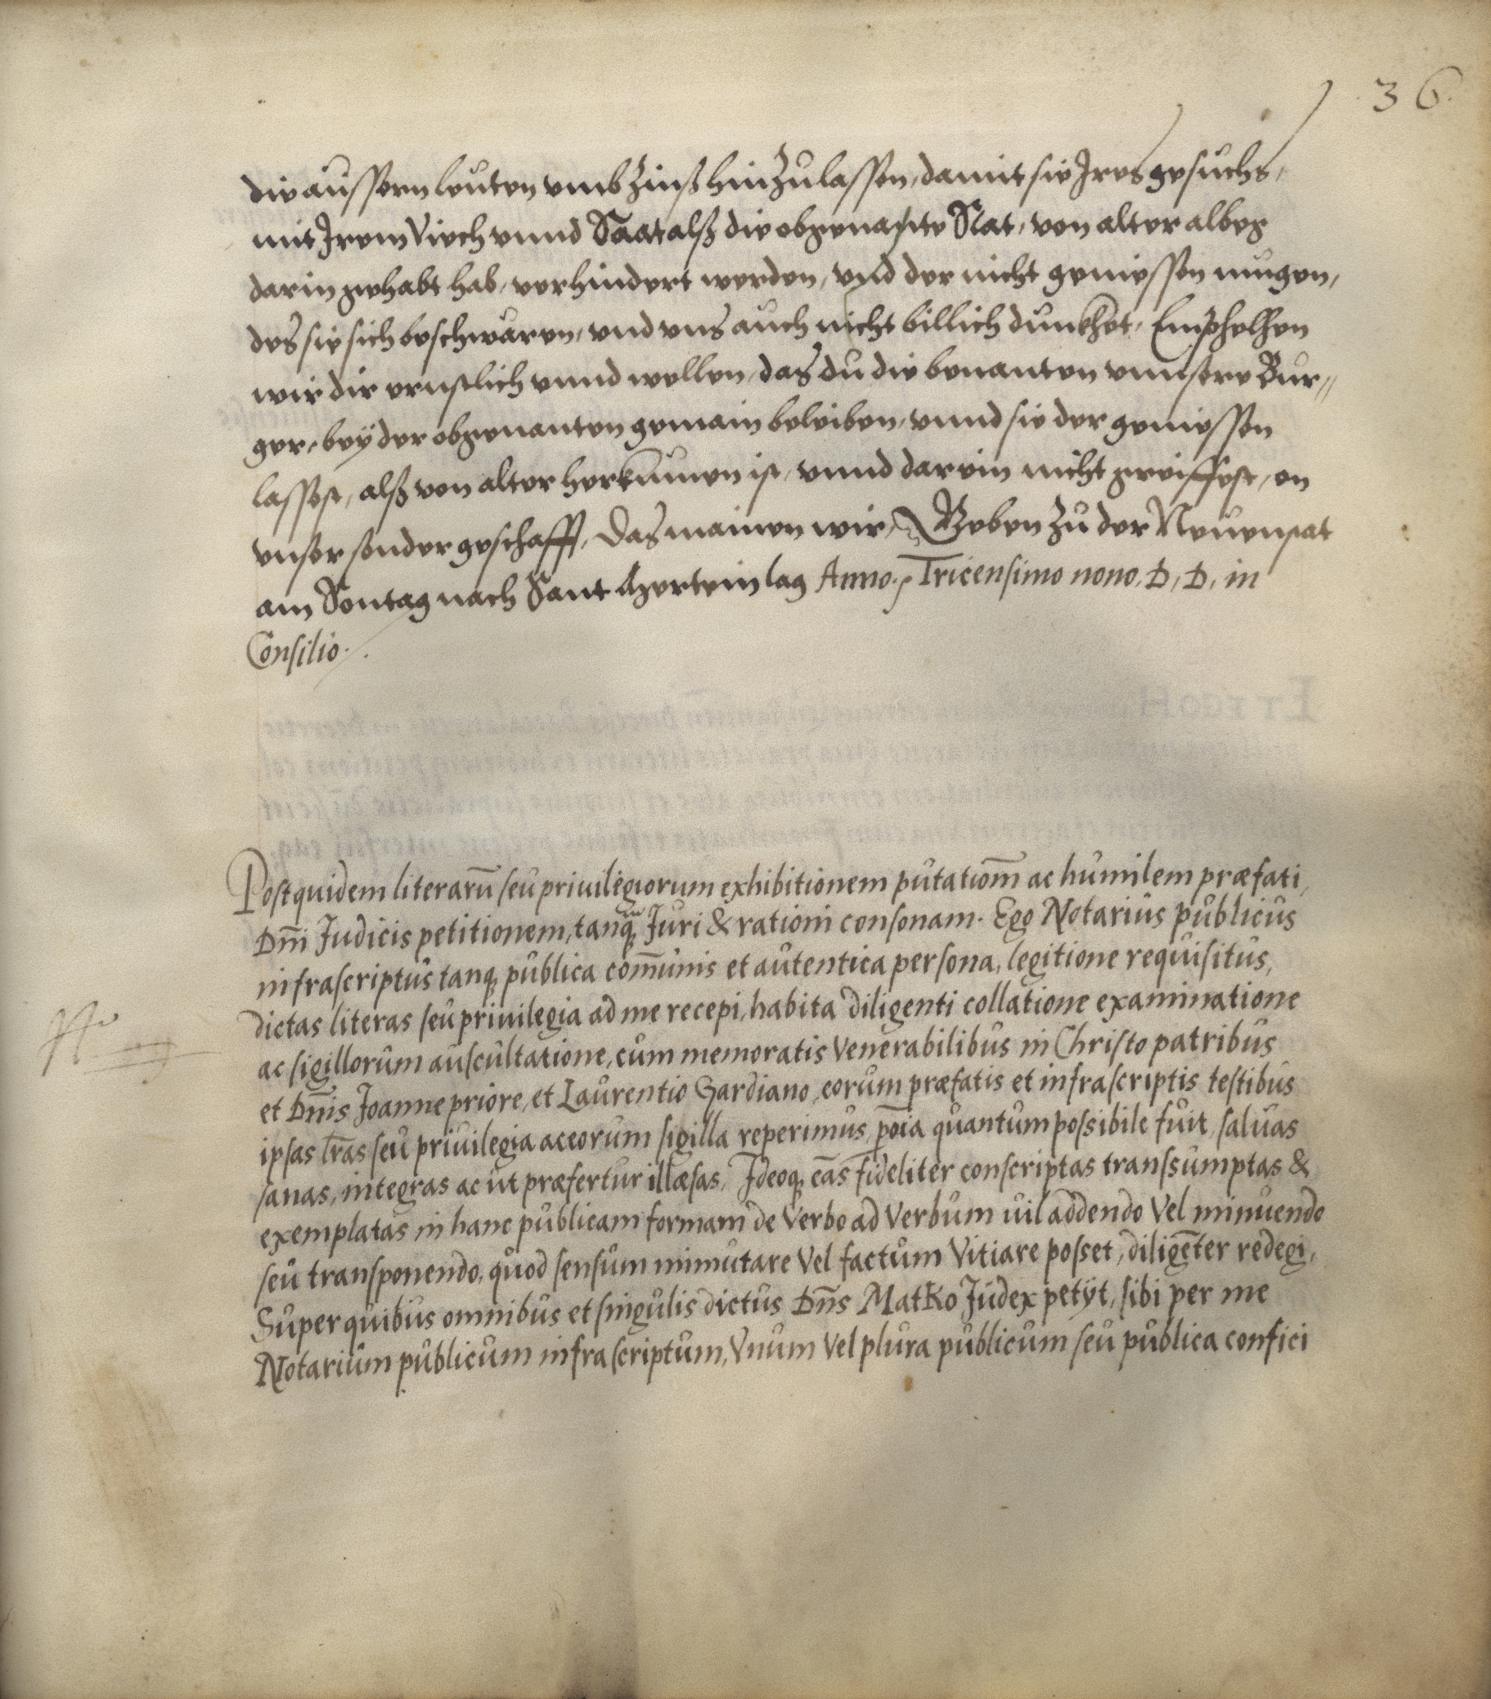 36.
die aussern leuten vmb Zinß hinZulassen, damit sie Ires gesuchs,
mit Irem Viech vnnd Saat alß die obgenante Stat, von alter albeg
darin gehabt hab, verhindert werden, vnd der nicht geniessen mugen,
des sie sich beschwären, vnd vns auch nicht billich dunkhet, Emphelhen
wir dir ernstlich vnnd wellen, das du die benanten vnnsere Bur„
ger, beÿ der obgenanten gemain beleiben, vnnd sie der geniessen
lassest, alß von alter herkumen ist, vnnd darein nicht greiffest, on
vnser sonder geschafft, Das mainen wir, Geben Zu der Neuenstat
am Sontag nach Sant tag Anno. Tricensimo nono. D, D, in
Consilio.
Postquidem literarū seu priuilegiorum exhibitionem putatiom̄ ac humilem præfati,
Dm̄i Judicis petitionem, tanq̨ Juri & rationi consonam. Ego Notarius publicus
infrascriptus tanq̨ publica com̄unis et autentica persona, legitione requisitus,
dictas literas seu priuilegia ad me recepi, habita diligenti collatione examinatione
ac sigillorum auscultatione, cum memoratis Venerabilibus in Christo patribus
et Dn̄is Joanne priore, et Laurentio Gardiano, eorum præfatis et infrascriptis testibus
ipsas lr̄as seu priuilegia ac eorum sigilla reperimus, p̄oīa quantum possibile fuit, saluas
sanas, integras ac ut præfertur illæsas, Ideoq̨ eās fideliter conscriptas transsumptas &
exemplatas in hanc publicam formam de Verbo ad Verbum nil addendo Vel minuendo
seu transponendo, quod sensum inmutare Vel factum Vitiare posset, diligēter redegi,
Super quibus omnibus et singulis dictus Dn̄s Matko Judex petÿt, sibi per me
Notarium publicum infrascriptum, Vnum Vel plura publicum seu publica confici